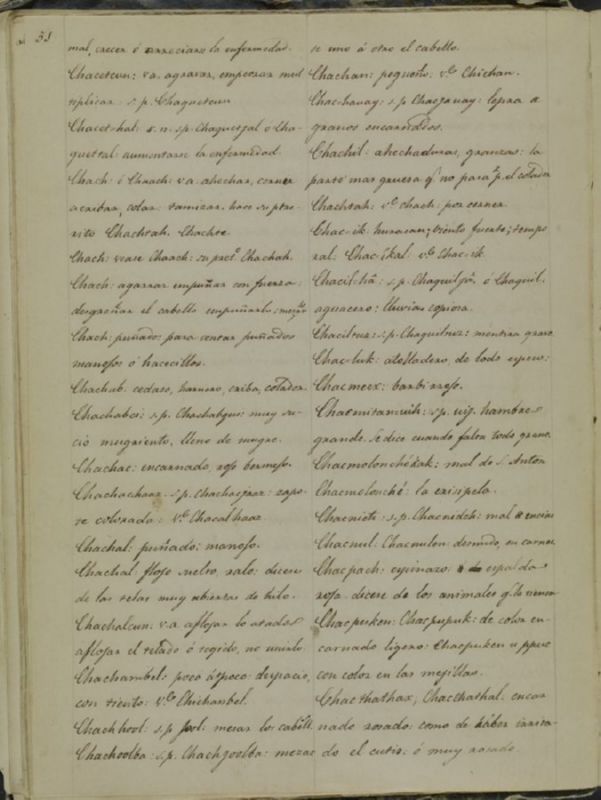 51
mal, crecer ó arreciarse la enfermedad.
Chacetcun: va. agravar, empezar mul
tiplicar. s.p. Chaquetcun
Chacet-hal: s.n. sp. Chaquetjal ó Cha-
quettal: aumentarse la enfermedad
Chach: ó Chaach: v.a. ahechar, cerner
acribar, colar: tamizar. hace su pte-
rito Chachtah. Chachte.
Chach: vease Chaach: su pret.º Chachah.
Chach: agarrar empuñar con fuerza:
desgreñar el cabello empuñarlo:
Chach: puñado: para contar puñados
manojos ó hacecillos.
Chachab. cedazo, harnero, criba, colador.
Chachabci: s.p. Chachabqui: muy su-
cio mugriento, lleno de mugre.
Chachac: encarnado, rojo bermejo.
Chachachaaz: s.p. zapo-
te colorado: v.e Chacalhaaz
Chachal: puñado: manojo.
Chachal: flojo suelto, ralo: dicese
de las telas muy abiertas de hilo.
Chachalcun: v.a. aflojar lo atado
aflojar el telado ó tegido, no unirlo.
Chachambel: poco á poco: despacio,
con tiento: v.e Chichanbel.
Chachhool: s.p. jool: mesar los cabell.
Chachoolba: s.p. Chachjoolba: mezar
se uno á otro el cabello.
Chachan: pequeño: v.e Chichan.
Chac-havay: s.p. Chacjavay: lepra ó
granos encarnados.
Chachil: ahechaduras, granzas: la
parte mas gruesa q.e no pasa p.r el colador
Chachtah: v.e chach: por cerner.
Chac-ik. huracan; viento fuerte; tempo
ral: Chac-Ikal: v.e Chac-ik.
s.p. ó Chaquil.
aguacero: lluvias copiosa.
Chaciltuz: s.p. Chaquiltuz: mentira grave
Chac-luk: atolladero, de lodo espeso:
Chacmeex: barbirrojo.
Chacmitan-uih: s.p. uij. hambre
grande. Se dice cuando falta todo grano.
Chacmolonchekak: mal de S. Anton
Chacmolonché: la erisipela.
Chacnich: s.p. Chacnidch: mal encias
Chacnul. Chacnulen: desnudo, en carnes
Chacpach: espinazo: espalda
roja. dicese de los animales q.e lo tienen
Chacpuken: Chacpupuk: de color en-
carnado ligero: Chacpuken u ppuc
con color en las mejillas.
Chacthathax, Chacthathal. encar
nado rosado: como de haber irrita-
do el cutis: ó muy rosado.